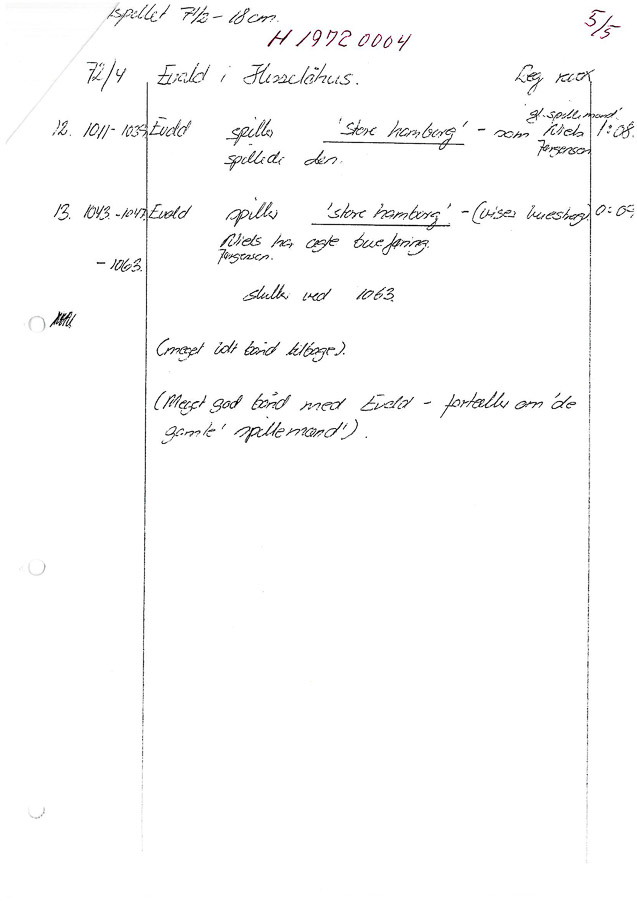 spillet 7 1/2 - 18 cm.
5/5
H 1972 0004
72/4 Evald i
gl. spillemand.
12. 1011 - 1039 Evald spiller 'Store hamborg' - som Niels 1:08.
spillede den. Jørgensen
13. 1043 - 1047 Evald spiller 'store hamborg' - (viser 0:09
Niels har ægte bueføring.
Jørgensen.
- 1063.
slutter ved 1063.
(meget bånd tilbage).
(Meget god bånd med Evald - fortæller om 'de
gamle' spillemænd').